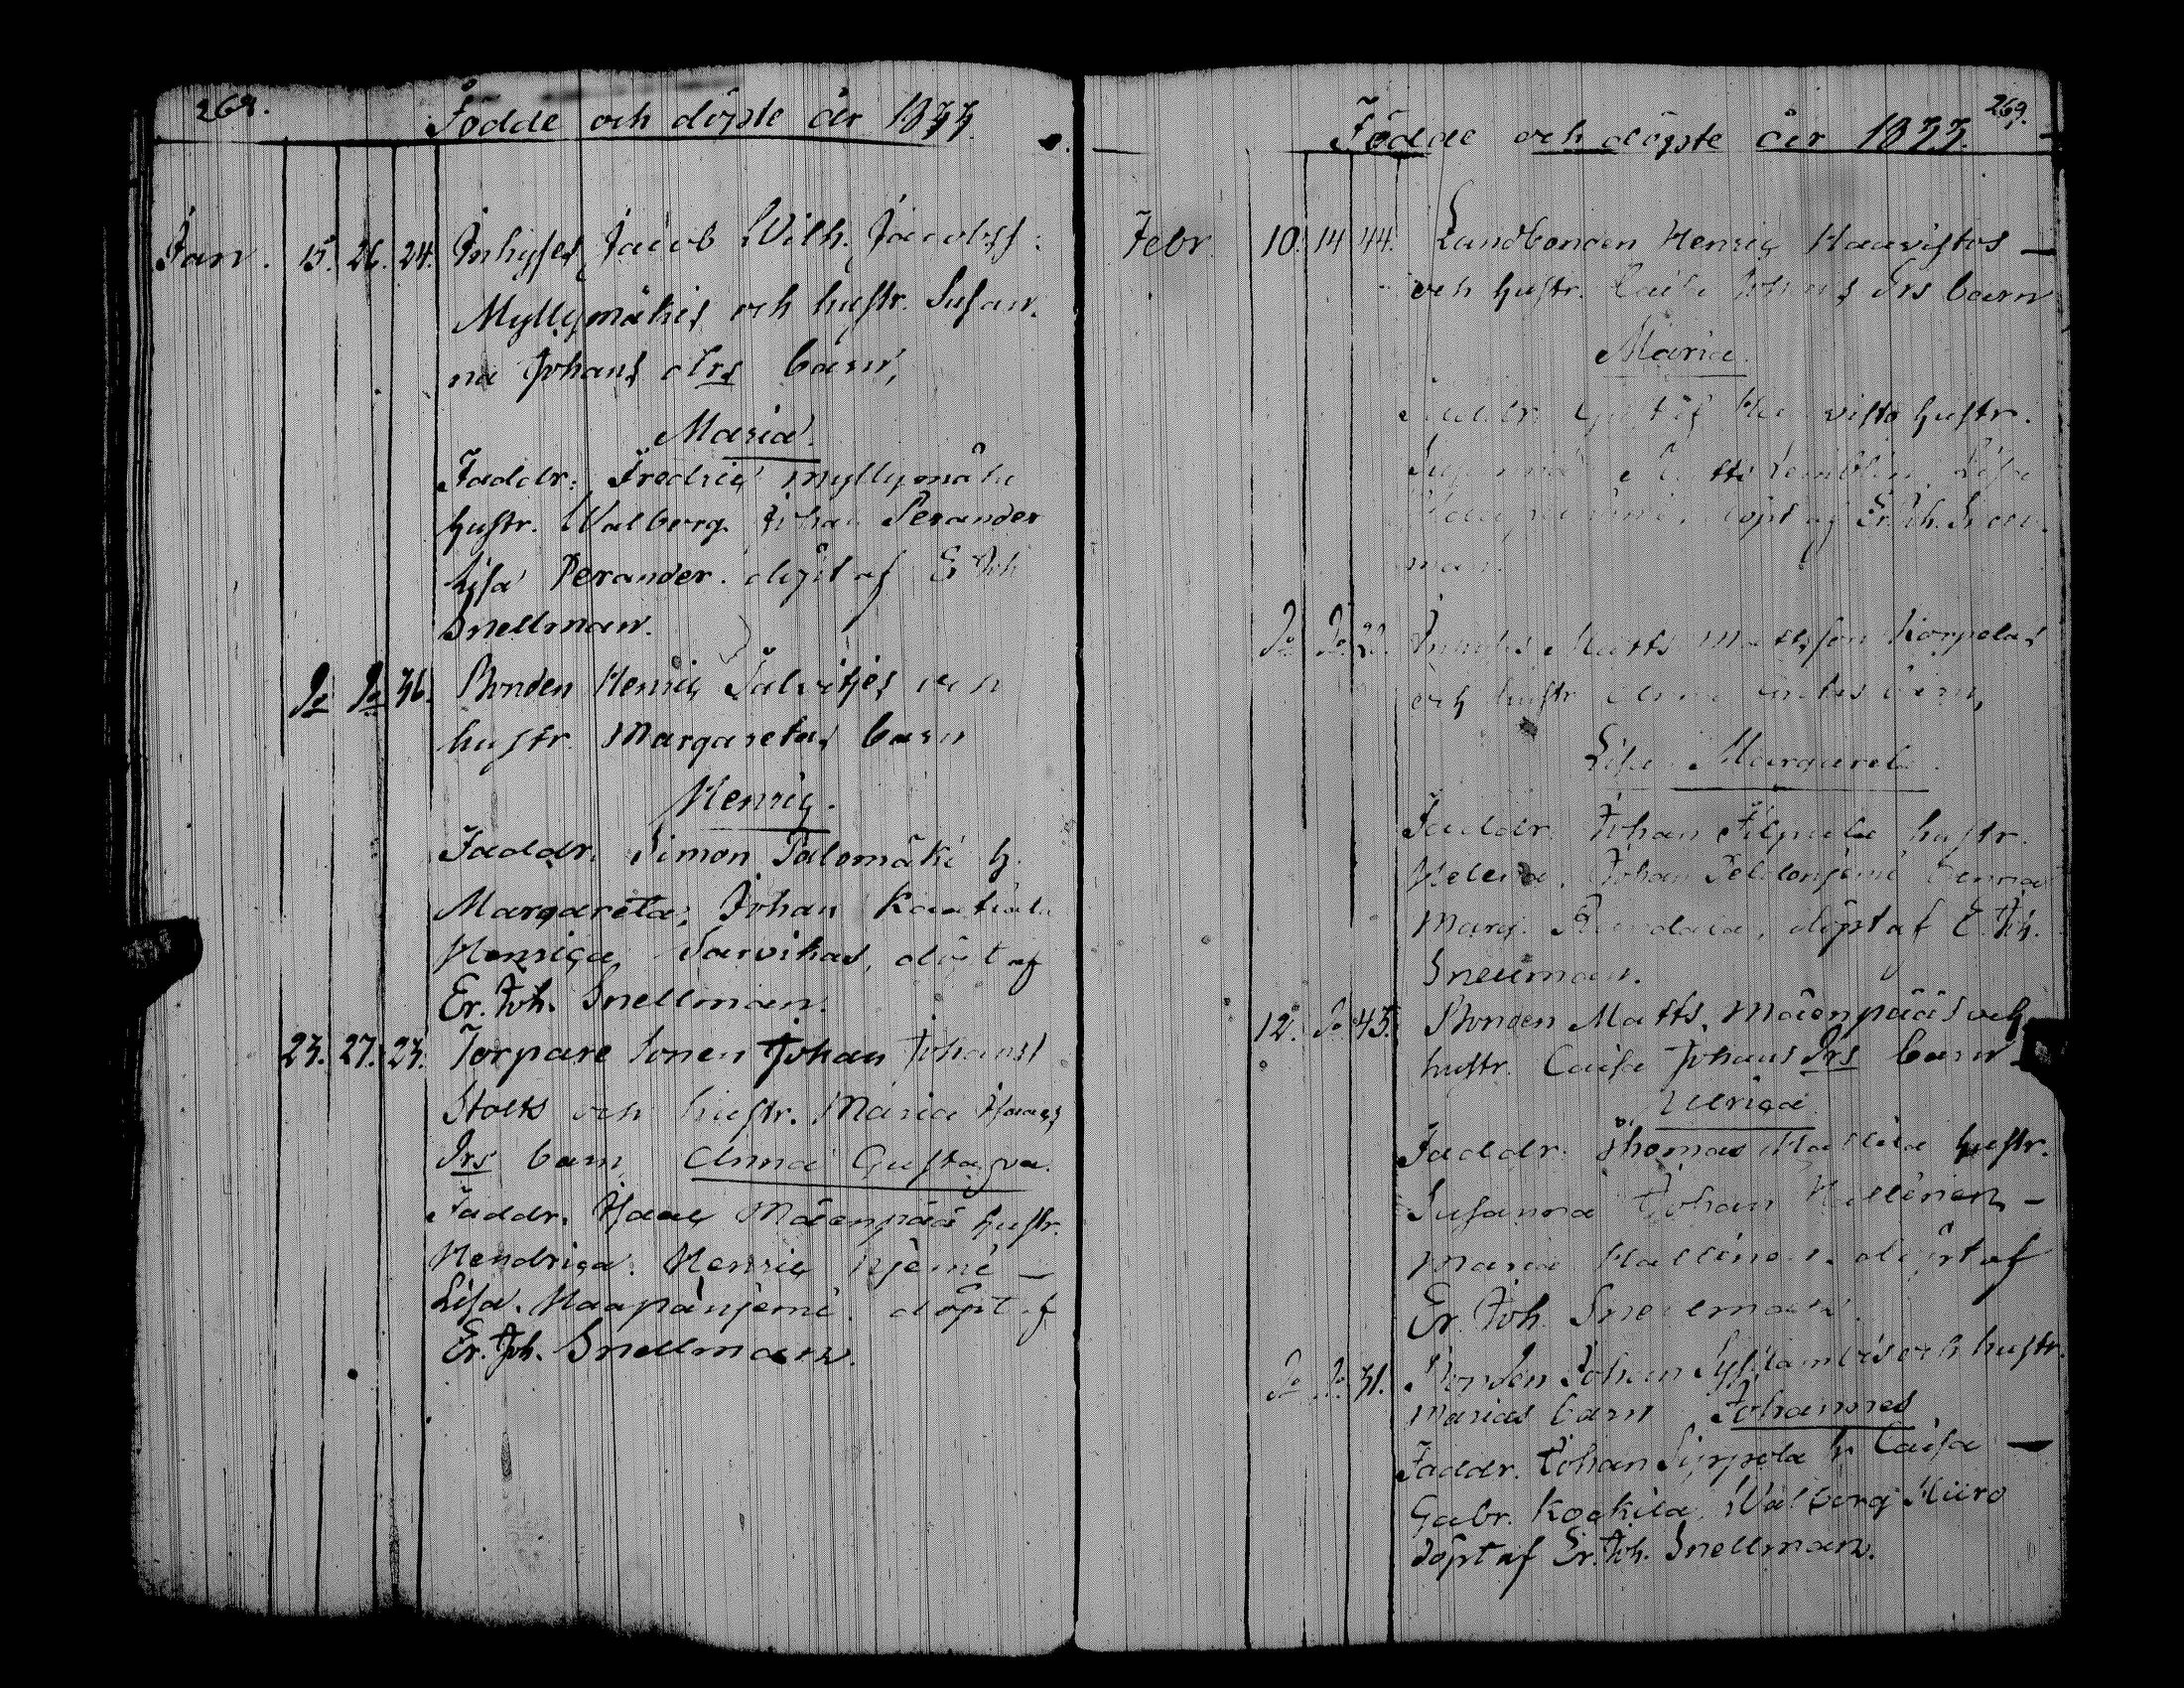 268.
Födde och döpte år 1833.
Jan. 15. 26. 24. Inhyses Jacob Wilh. Jacobss:
Myllymäkis och hustr. Susan-
na Johans drs barn,
Maria.
Faddr: Fredric Myllymäki
hustr. Walborg. Johan Perander
Lisa Perander. döpt af E Joh
Snellman.
Do Do 36. Bonden Henric Talvitjes och
hustr. Margaretas barn
Henric.
Faddr. Simon Palomäki h.
Margareta, Johan
Henrica Sarvikas, döpt af
Er. Joh. Snellman.
23. 27. 23. Torpare Sonen Johan Johanss
Stolts och hustr. Maria Isaacs
Drs barn Anna Gustafva.
Faddr. Isaac Mäenpää hustr.
Hendrica. Henric Njemi –
Lisa. Haapanjemi. döpt af
Er. Joh. Snellman.
269.
Födde och döpte år 1833.
Febr. 10. 14 44. Landbonden Henric Haavistos –
och hustr. Caisa Johans Drs barn
Maria.
Faddr. Gustaf Haavisto hustr.
Lisa
döpt af Er. Joh. Snell-
man.
Do Do Inhyses Matts Mattsson Korpelas
och hustr Anna barn,
Lisa Margareta.
Faddr. Johan Filpula hustr.
Helena. Johan
Marg. döpt af E. Joh.
Snellman.
12. Do 43. Bonden Matts Mäenpääs och
hustr. Caisa Johans Drs barn
Ulrica.
Faddr. Thomas hustr.
Susanna Johan –
Maria döpt af
Er. Joh. Snellman.
Do Do 31. Bonden Johan och hustr.
Marias barn Johannes
Faddr. Johan Syrpola h. Caisa –
Gabr. Koskila, Walborg Miiro
döpt af Er. Joh. Snellman.